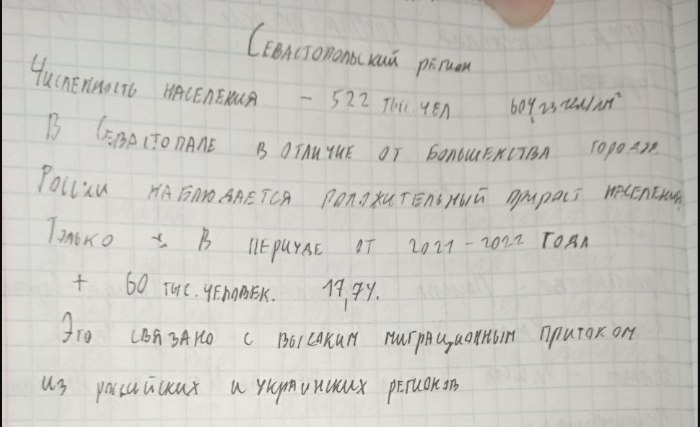 Севастопольский регион
Численность населения – 522 тыс. чел 604,23 чел/км²
В Севастопале в отличие от большенства городов
России наблюдается положительный прирост населения
Только в периуде от 2021-2022 года
+ 60 тыс. человек. 17,74.
Это связано с высоким миграционным притоком
из российских и украинских регионов